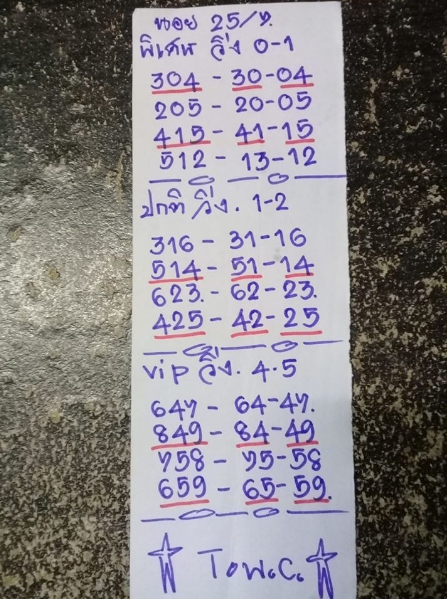 หอย 25/7.
พิเศษ วิ่ง 0-1
304 - 30-04
205 - 20-05
415 - 41-15
512 - 13-12
ปกติ วิ่ง. 1-2
316 - 31-16
514 - 51-14
623. - 62-23.
425 - 42-25
vip วิ่ง. 4.5
647 - 64-47.
849 - 84-49
758 - 75-58
659 - 65-59.
T.W.C.